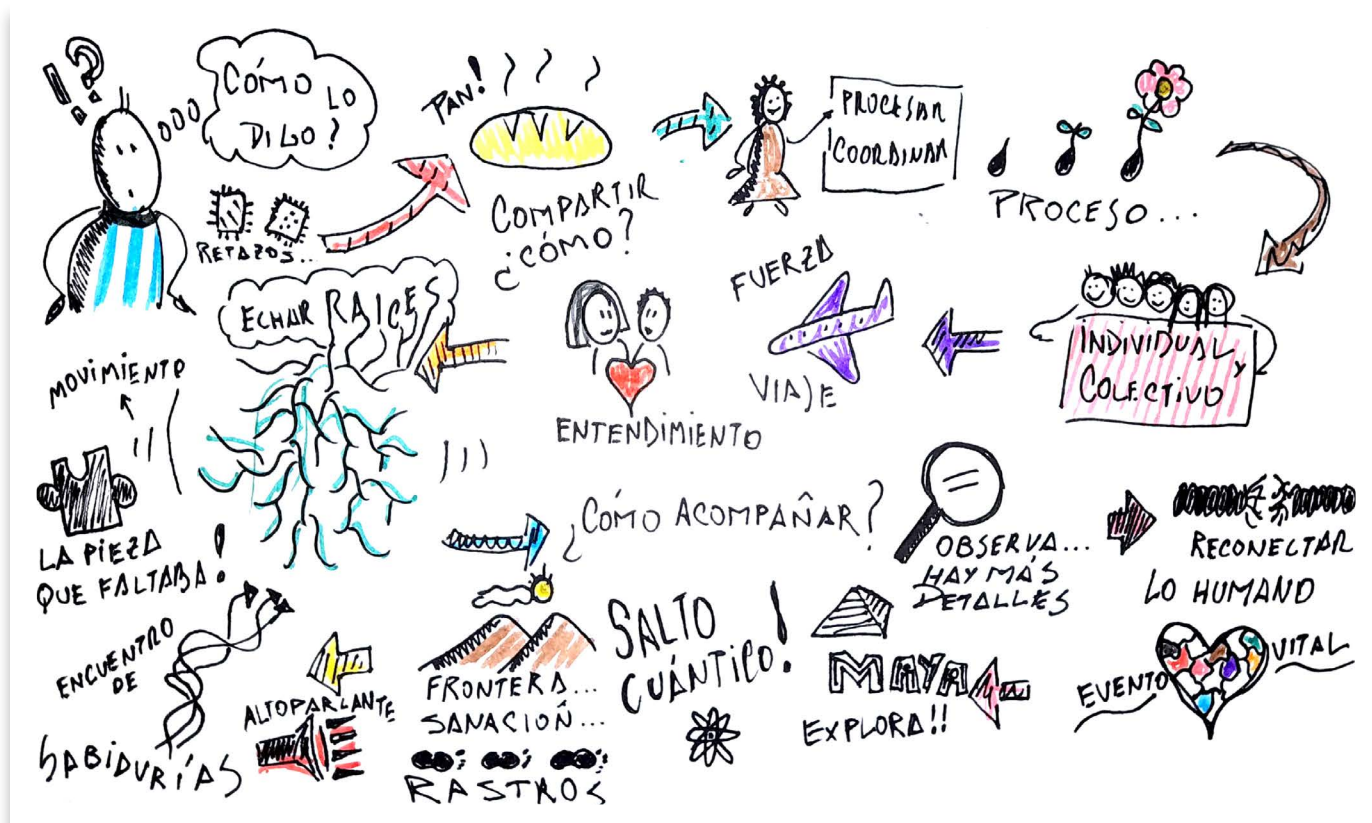 !?
CÓMO LO
DIGO?
RETAZOS..
PAN!
COMPARTIR
¿CÓMO?
PROCESAR
COORDINAR
PROCESO...
INDIVIDUAL Y
COLECTIVO
FUERZA
VIAJE
ENTENDIMIENTO
ECHAR RAICES
MOVIMIENTO
LA PIEZA
QUE FALTABA!
¿CÓMO ACOMPAÑAR?
OBSERVA...
HAY MÁS
DETALLES
RECONECTAR
LO HUMANO
EVENTO VITAL
MAYA
EXPLORA!!
SALTO
CUÁNTICO!
FRONTERA...
SANACIÓN...
RASTROS
ALTOPARLANTE
ENCUENTRO
DE
SABIDURÍAS